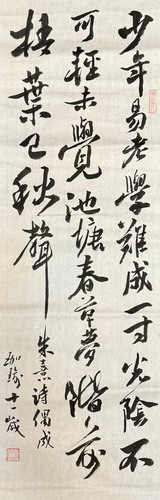 少年易老學難成一寸光陰不
可輕未覺池塘春草夢階前
梧葉已秋聲
朱熹詩偶成
十一歲